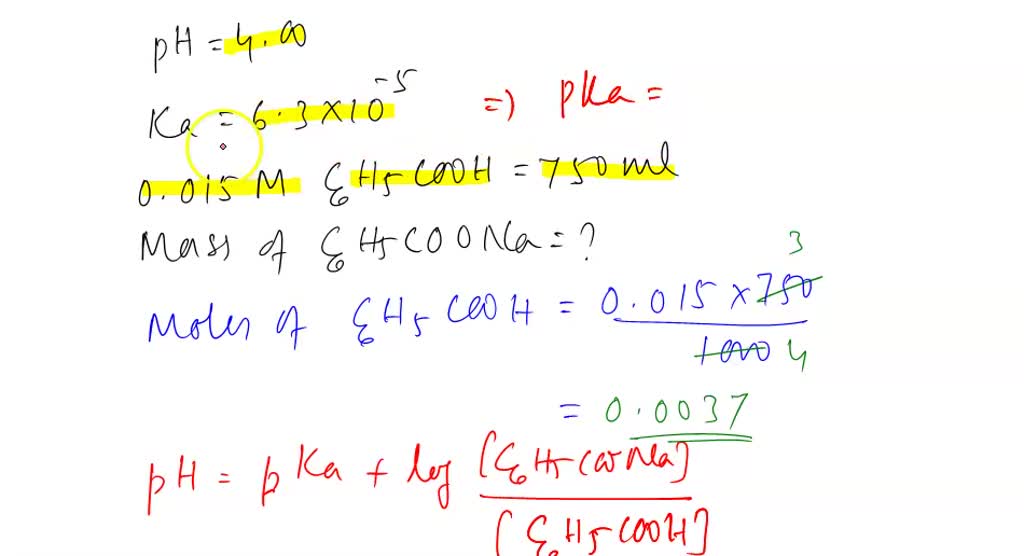 pH = 4.00
Ka = 6.3 × 10⁻⁵ => pKa =
0.015 M C₆H₅COOH = 750 ml
Mass of C₆H₅COONa = ?
Moles of C₆H₅COOH = 0.015 × 750 3
1000 4
= 0.0037
pH = pKa + log [C₆H₅COONa]
[C₆H₅COOH]